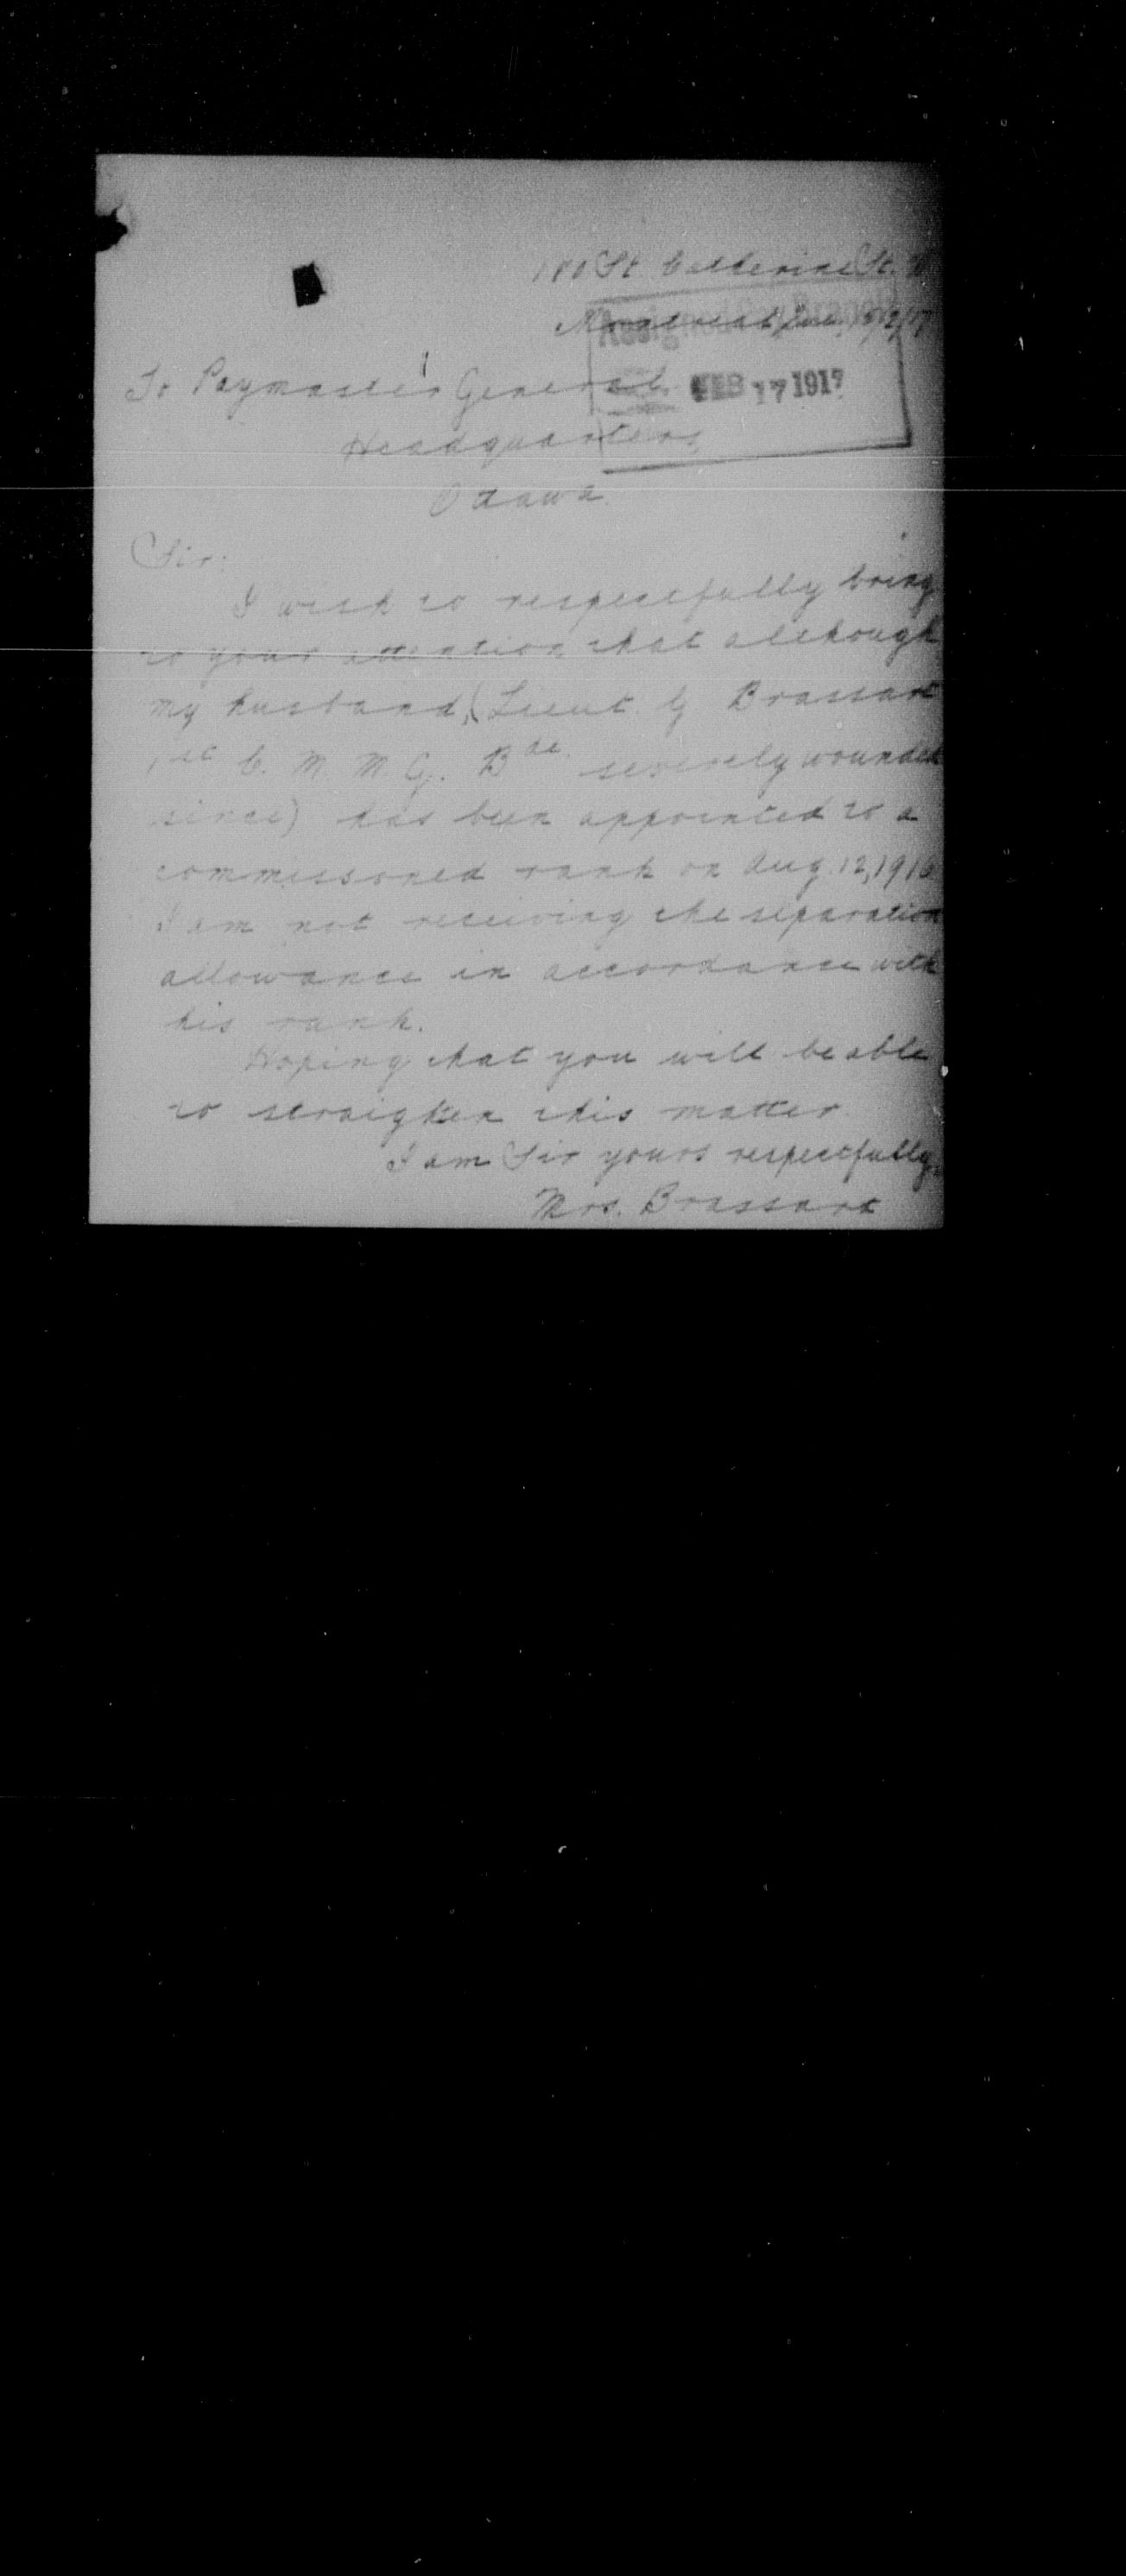 180 St Catherine St. W
Montreal, Que,
Assigned Branch
FEB 17 1917
To Paymaster General
Headquarters
Ottawa
Sir:
I wish to respectfully bring
to your attention that although
my husband, (Lieut. G Brassart
1st C. M. M. G. Bde severely wounded
since) has been appointed to a
commissoned rank on Aug. 12, 1916
I am not receiving the separation
allowance in accordance with
his rank.
Hoping that you will be able
to straighten this matter
I am Sir yours respectfully,
Mrs. Brassart